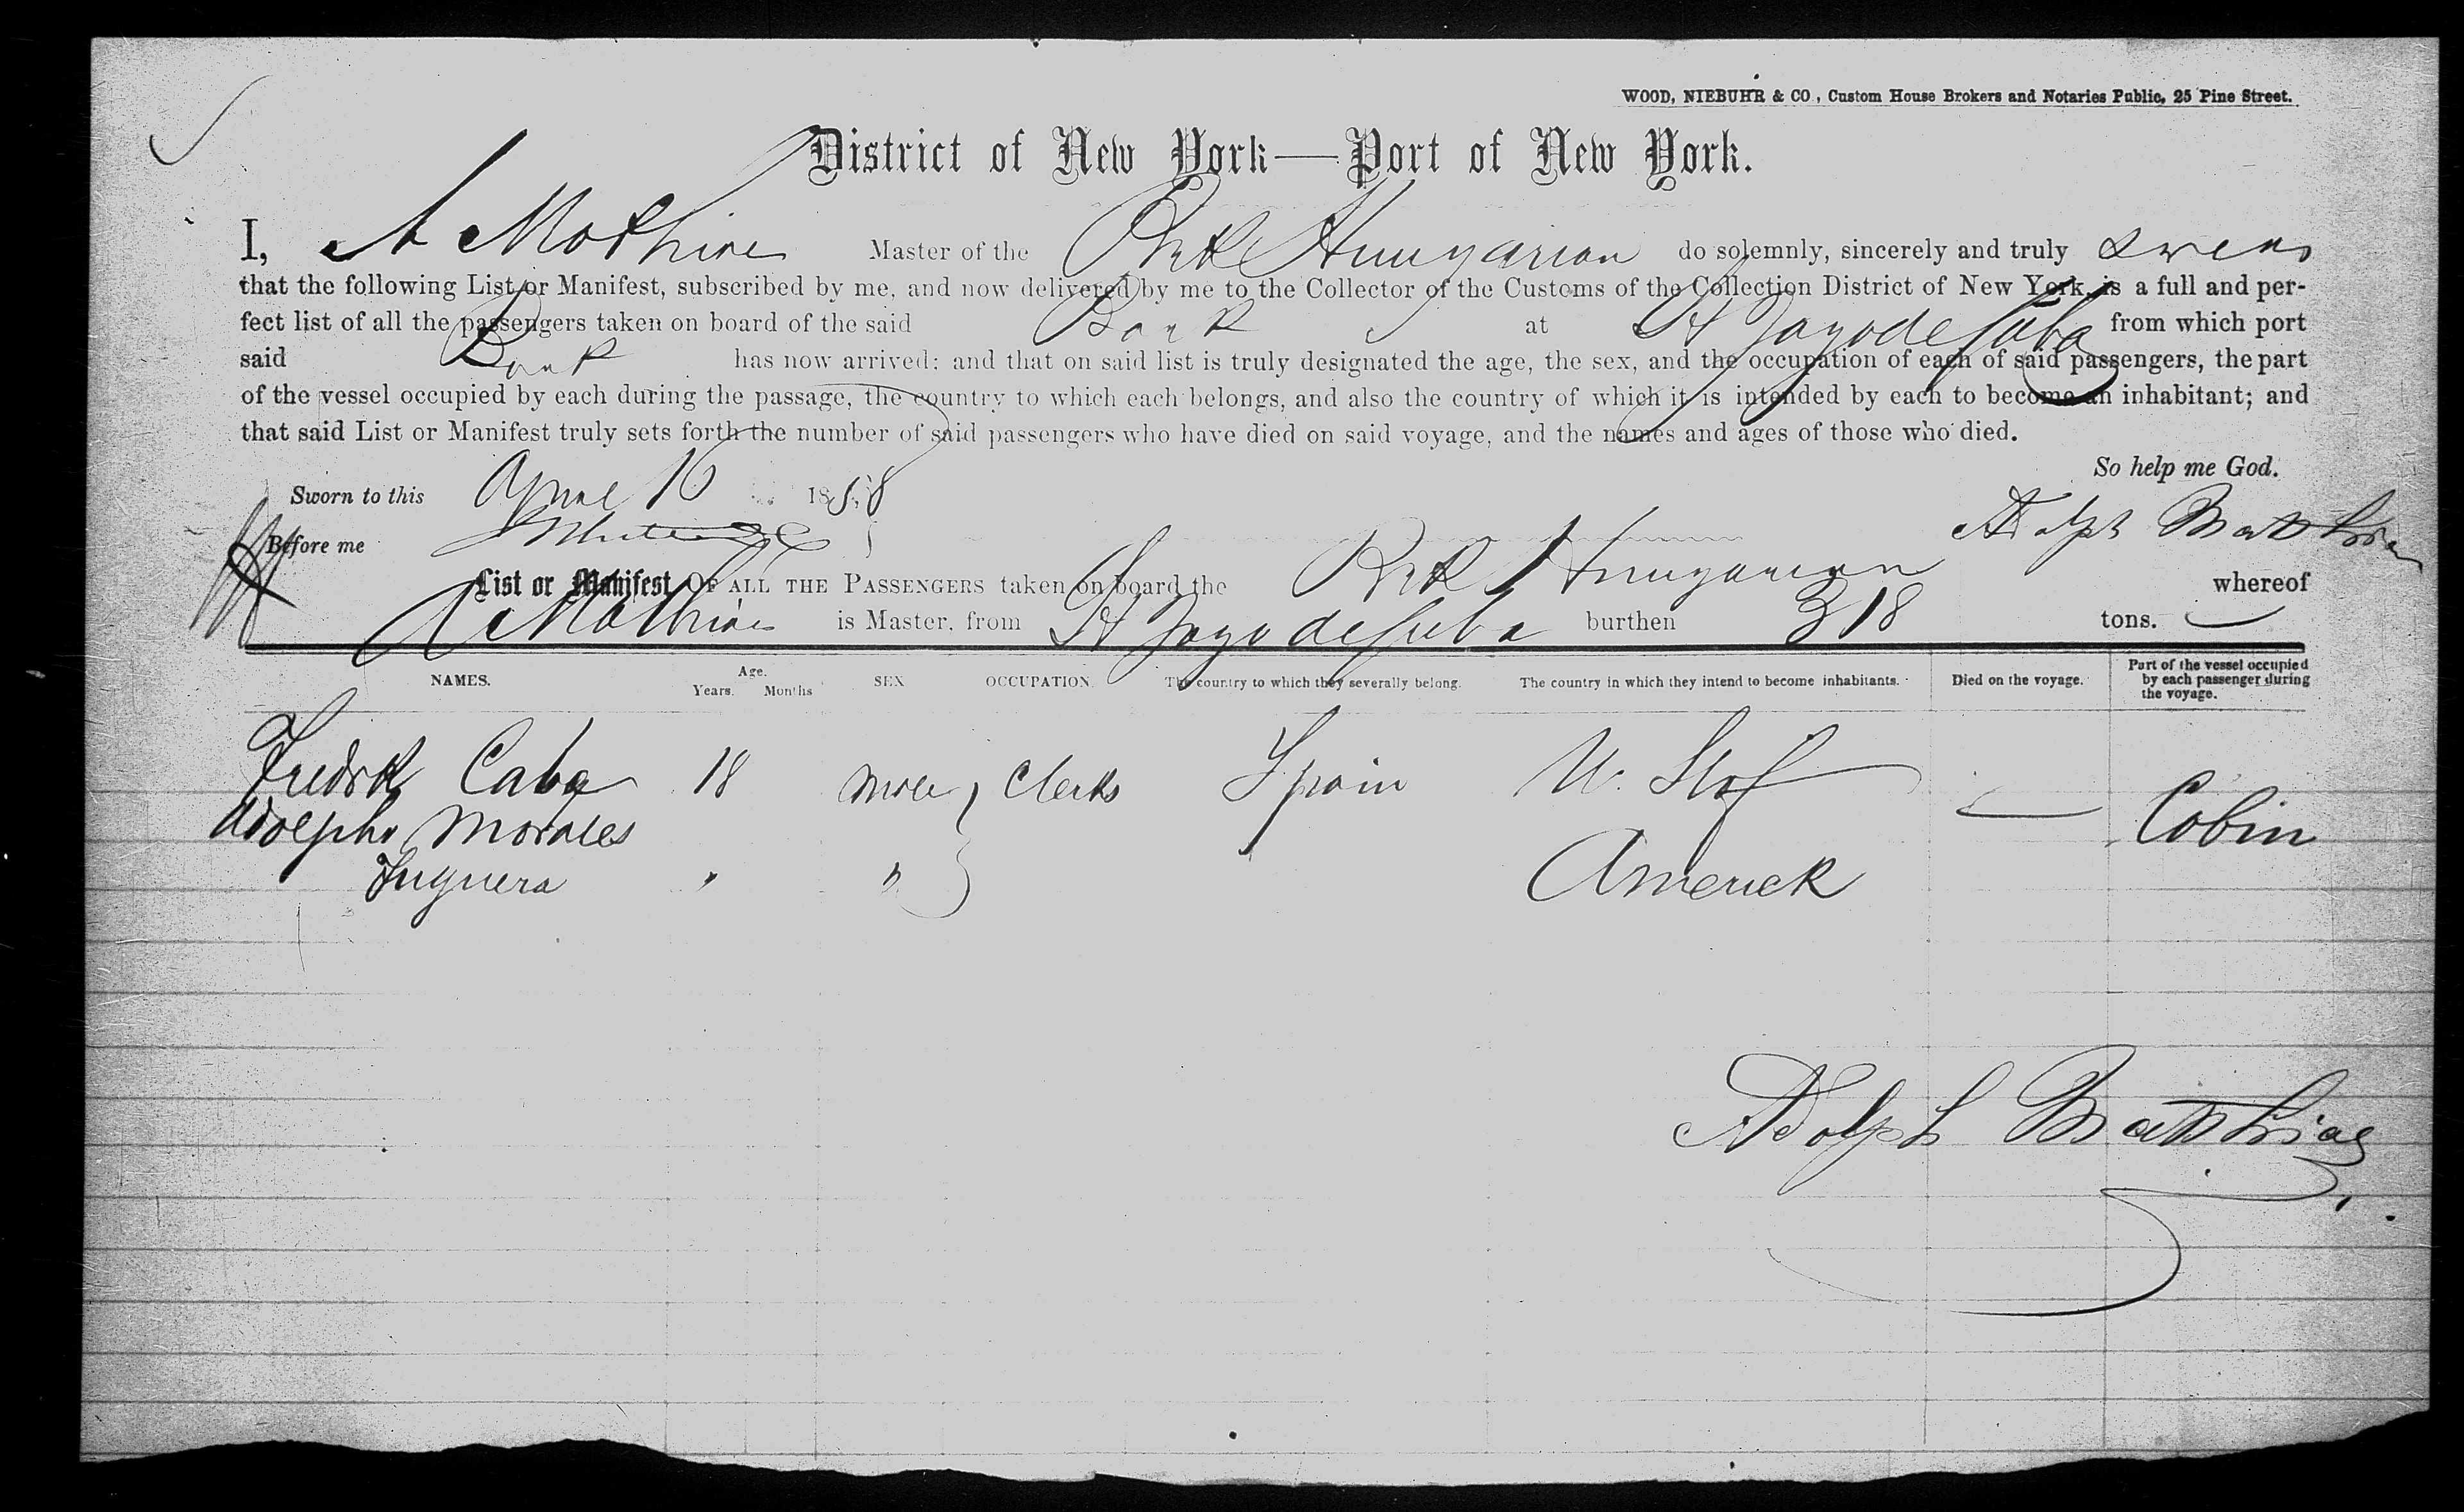 WOOD, NIEBUHR & CO., Custom House Brokers and Notaries Public, 25 Pine Street.
District of New York—Port of New York.
I, A Mathias Master of the Brk Hungarian do solemnly, sincerely and truly swear
that the following List or Manifest, subscribed by me, and now delivered by me to the Collector of the Customs of the Collection District of New York, is a full and per-
fect list of all the passengers taken on board of the said Bark at St Jago de Cuba from which port
said Bark has now arrived: and that on said list is truly designated the age, the sex, and the occupation of each of said passengers, the part
of the vessel occupied by each during the passage, the country to which each belongs, and also the country of which it is intended by each to become an inhabitant; and
that said List or Manifest truly sets forth the number of said passengers who have died on said voyage, and the names and ages of those who died.
So help me God.
Sworn to this April 16 1858
Adolph Matthias
Before me
List or Manifest OF ALL THE PASSENGERS taken on board the Brk Hungarian whereof
A Mathias is Master, from St Jago de Cuba burthen 318 tons.
NAMES. Age. Years. Months SEX OCCUPATION. The country to which they severally belong. The country in which they intend to become inhabitants. Died on the voyage. Part of the vessel occupied by each passenger during the voyage.
Fredrk Caba 18 male Clerks Spain U. St of — Cabin
Adolpho Morales
Fuguera " " Americk
Adolph Matthias